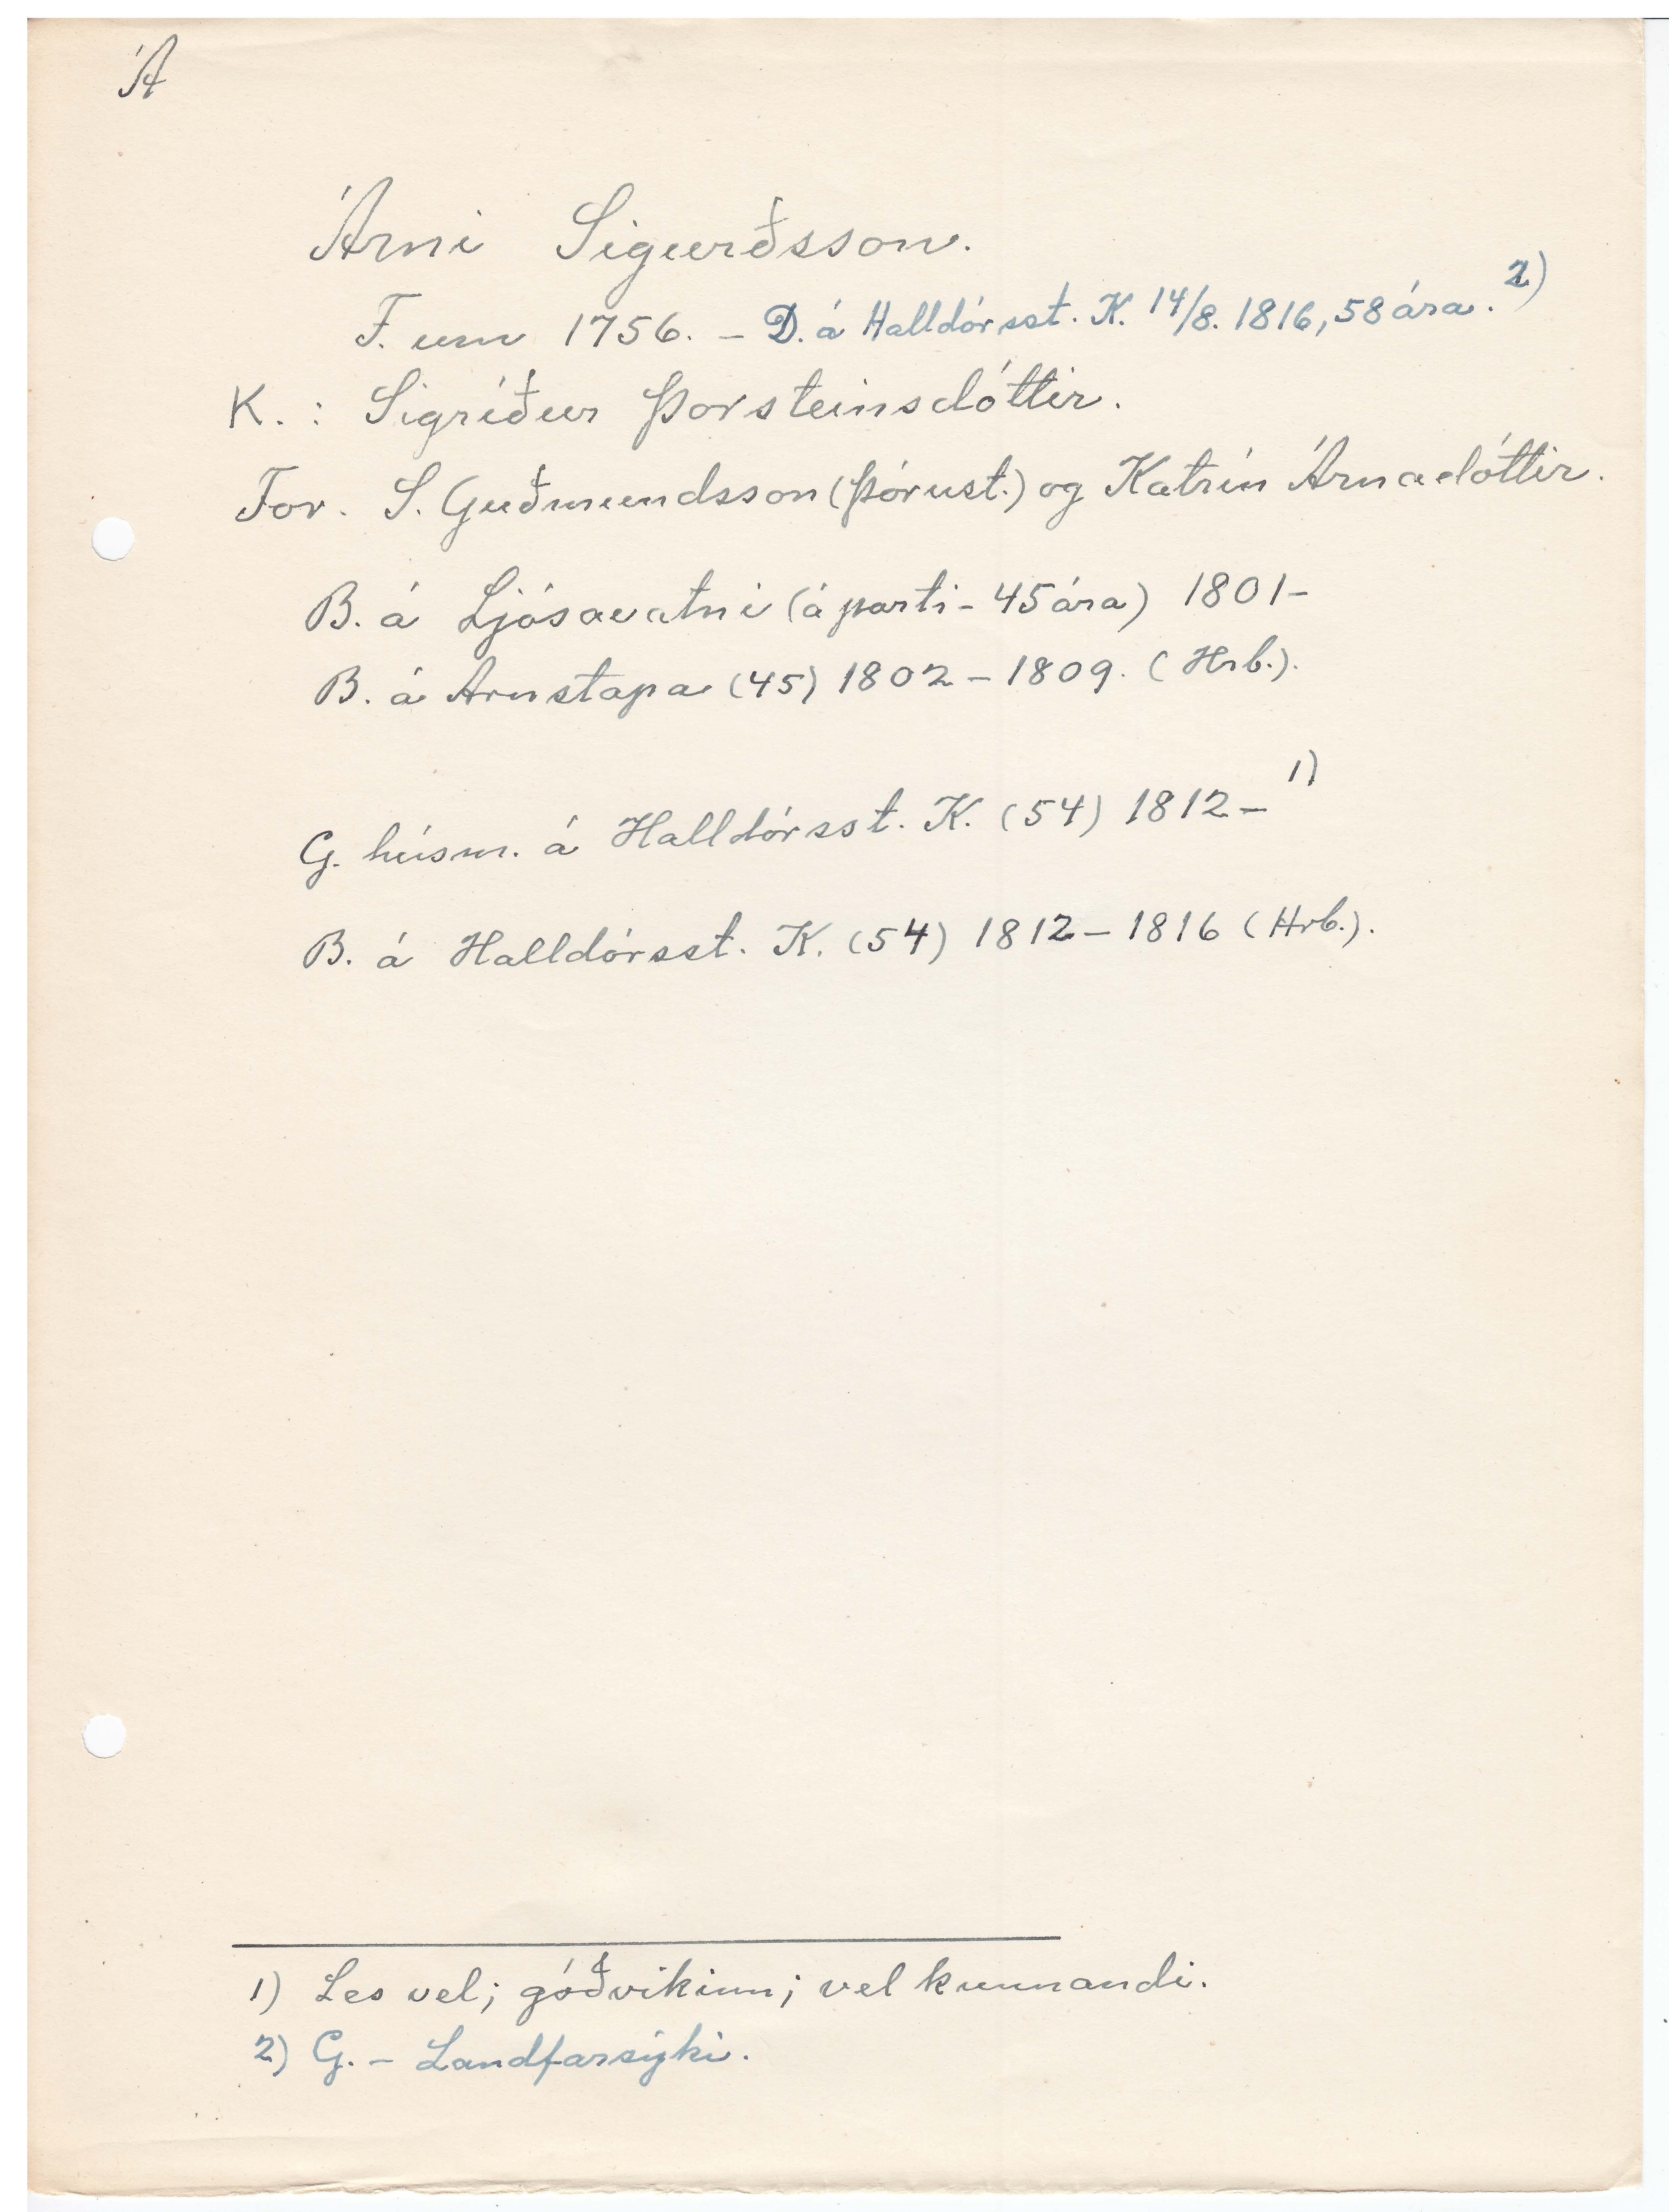 Á
Árni Sigurðsson.
F. um 1756. – D. á Halldórsst. K. 14/8. 1816, 58 ára. 2)
K. : Sigríður Þorsteinsdóttir.
For. S. Guðmundsson (Þórust.) og Katrín Árnadóttir.
B. á Ljósavatni (á parti – 45 ára) 1801–
B. á Arnstapa (45) 1802 – 1809. (Hrb.).
G. húsm. á Halldórsst. K. (54) 1812 – 1)
B. á Halldórsst. K. (54) 1812 – 1816 (Hrb.).
1) Les vel; góðvikinn; vel kunnandi.
2) G. – Landfarsýki.